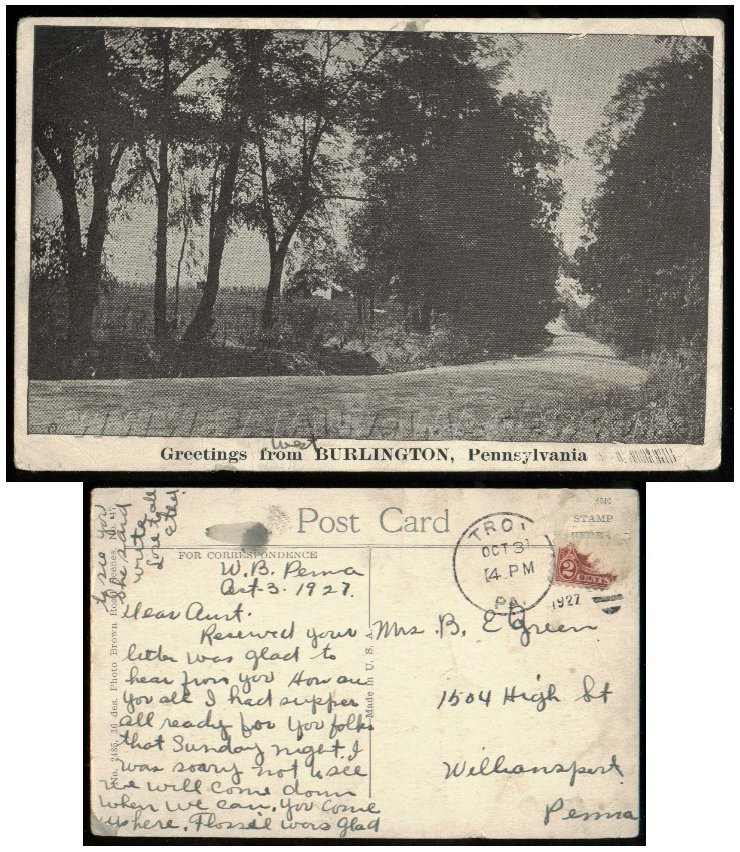 West
Greetings from BURLINGTON, Pennsylvania
to see you
She said
write
Love to all
Post Card
FOR CORRESPONDENCE
STAMP
HERE
TROY
OCT 3
4 PM
PA.
1927
2 CENTS
W.B. Penna
Oct. 3. 1927.
Dear Aunt.
Reserved your
letter was glad to
hear from you How are
you all I had supper
all ready for you folks
that Sunday night. I
was soary not to see
we will come down
when we can. you come
up here. Flossie was glad
Mrs. B. E Green
1504 High St
Williamsport
Penna
Made in U. S. A.
No. 2485, 16 des. Photo Brown Road Scenes, No.